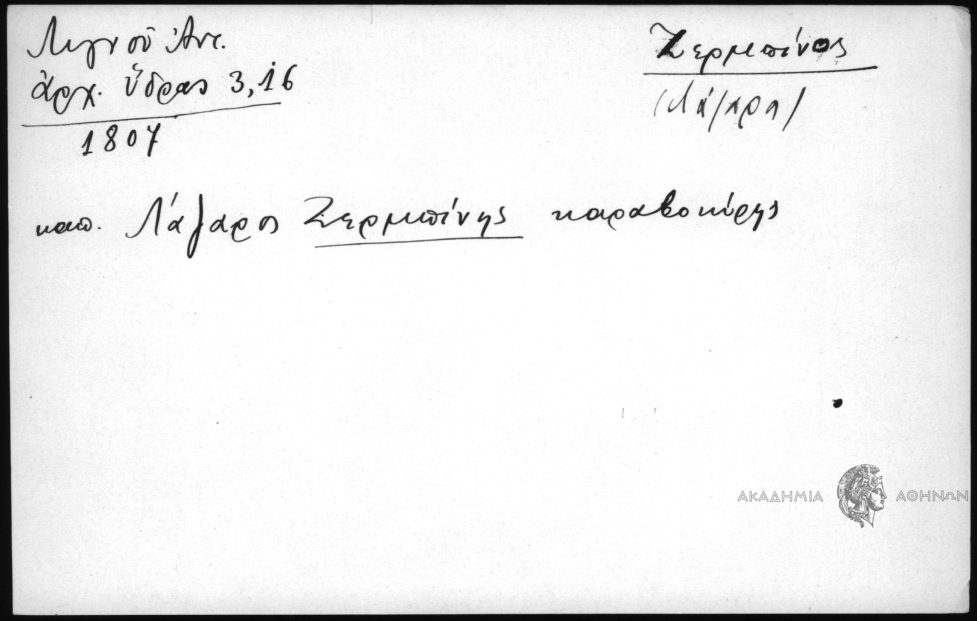 Λιγνοῦ Ἀντ.
ἀρχ. Ὕδρας 3,16
1807
Ζερμπίνος
(Λάζαρη)
καπ. Λάζαρος Ζερμπίνης καραβοκύρης
ΑΚΑΔΗΜΙΑ ΑΘΗΝΩΝ